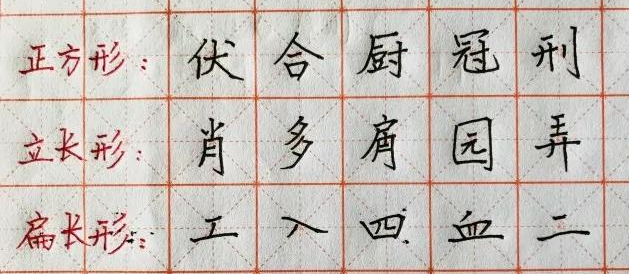 正方形：伏合厨冠刑
立长形：肖多肩园弄
扁长形：工入四血二